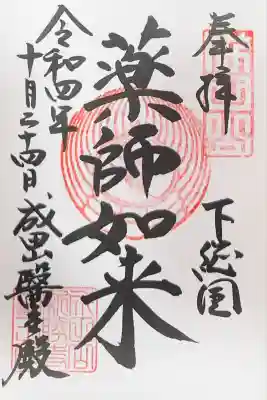 奉拝
下総国
薬師如来
令和四年
十月二十四日
成田山醫王殿